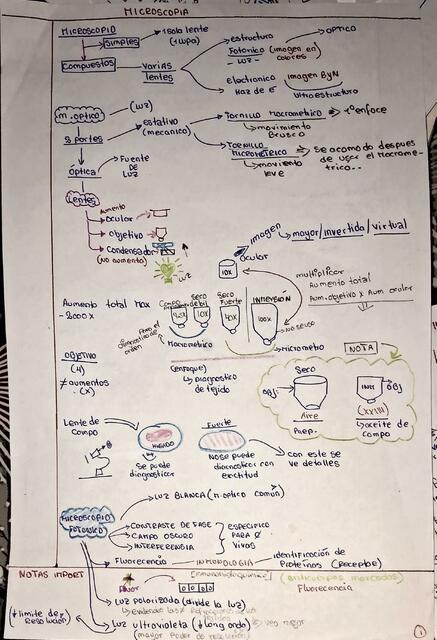 MICROSCOPIA
MICROSCOPIO
Simples → 1 sola lente
(lupa)
Compuestos → VARIAS
lentes
estructura → OPTICO
Fotonico (imagen en
- LUZ - colores
electronico imagen ByN
Haz de e⁻ Ultraestructura
m. optico → (LUZ)
3 partes → estativo
(mecanico)
TORNILLO MACROMETRICO → 1º enfoce
→ movimiento
Brusco
TORNILLO
MICROMETRICO → Se acomodo despues
→ movimiento de usar el Macrome-
leve trico..
Optica → Fuente
DE
LUZ
Lentes
Aumento
Ocular
Objetivo
Condensador
(No aumenta)
LUZ
imagen → mayor/invertida/virtual
Ocular
10X
multiplicar
Aumento total
Aum. objetivo x Aum ocular
Aumento total Max
- 1000X
Seco
debil
10X
Seco
Fuerte
40X
INMERSIÓN
100X
→ NO SE USO
Macrometrico
→ Micrometro
(enfoque)
→ Diagnostico
de tejido
OBJETIVO
(4)
≠ aumentos
(X)
NOTA
Seco
OBJ.
Aire
INM
OBJ
(XXIII)
→ aceite de
Lente de
campo
Se puede
diagnosticar
Fuerte
No se puede
diagnosticar con
exactitud
Con este se
ve detalles
MICROSCOPIO
FOTONICO
LUZ BLANCA (m. optico común)
CONTRASTE DE FASE
CAMPO OSCURO
INTERFERENCIA
ESPECIFICO
PARA
Vivos
Fluorecencia → INMUNOLOGIA → identificación de
Proteinas (Receptor)
NOTAS IMPORT
(inmunohistoquimica) (anticuerpos marcados)
Fluor Fluorecencia
LUZ polarizada (divide la LUZ)
(↓ limite de
Resolución)
LUZ ultravioleta (↓ long onda) → ves mejor
(mayor poder de resolución)
1